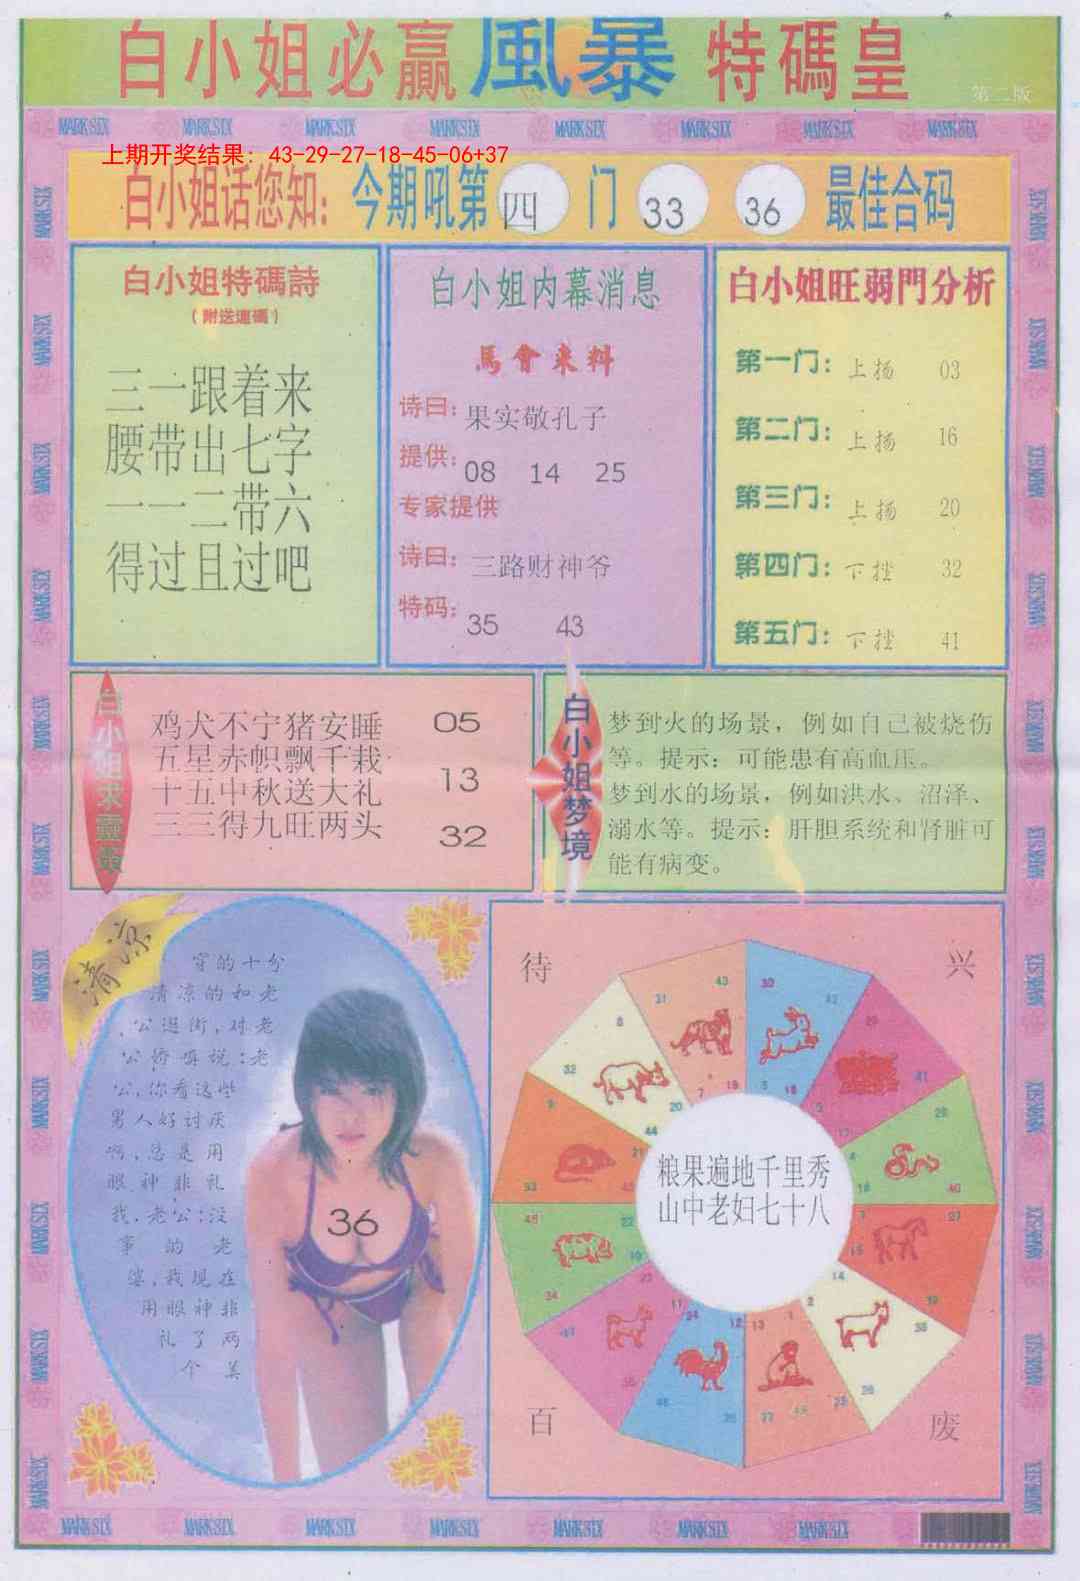 白小姐必贏風暴特碼皇
第二版
MARK SIX MARK SIX MARK SIX MARK SIX MARK SIX MARK SIX MARK SIX MARK SIX
上期开奖结果：43-29-27-18-45-06+37
白小姐话您知：今期吼第四门 33 36 最佳合码
白小姐特碼詩
（附送連碼）
三一跟着来
腰带出七字
一一二带六
得过且过吧
白小姐内幕消息
馬會来料
诗曰：果实敬孔子
提供：08 14 25
专家提供
诗曰：三路财神爷
特码：35 43
白小姐旺弱門分析
第一门：上扬 03
第二门：上扬 16
第三门：上扬 20
第四门：下挫 32
第五门：下挫 41
白小姐求靈
鸡犬不宁猪安睡 05
五星赤帜飘千栽
十五中秋送大礼 13
三三得九旺两头 32
白小姐梦境
梦到火的场景，例如自己被烧伤
等。提示：可能患有高血压。
梦到水的场景，例如洪水、沼泽、
溺水等。提示：肝胆系统和肾脏可
能有病变。
清凉
穿的十分
清凉的和老
公逛街，对老
公娇嗔说：老
公，你看这些
男人好讨厌
啊，总是用
眼神非礼
我，老公：没
事的老
婆，我现在
用眼神非
礼了两
个美
36
待
兴
百
废
粮果遍地千里秀
山中老妇七十八
MARK SIX MARK SIX MARK SIX MARK SIX MARK SIX MARK SIX MARK SIX